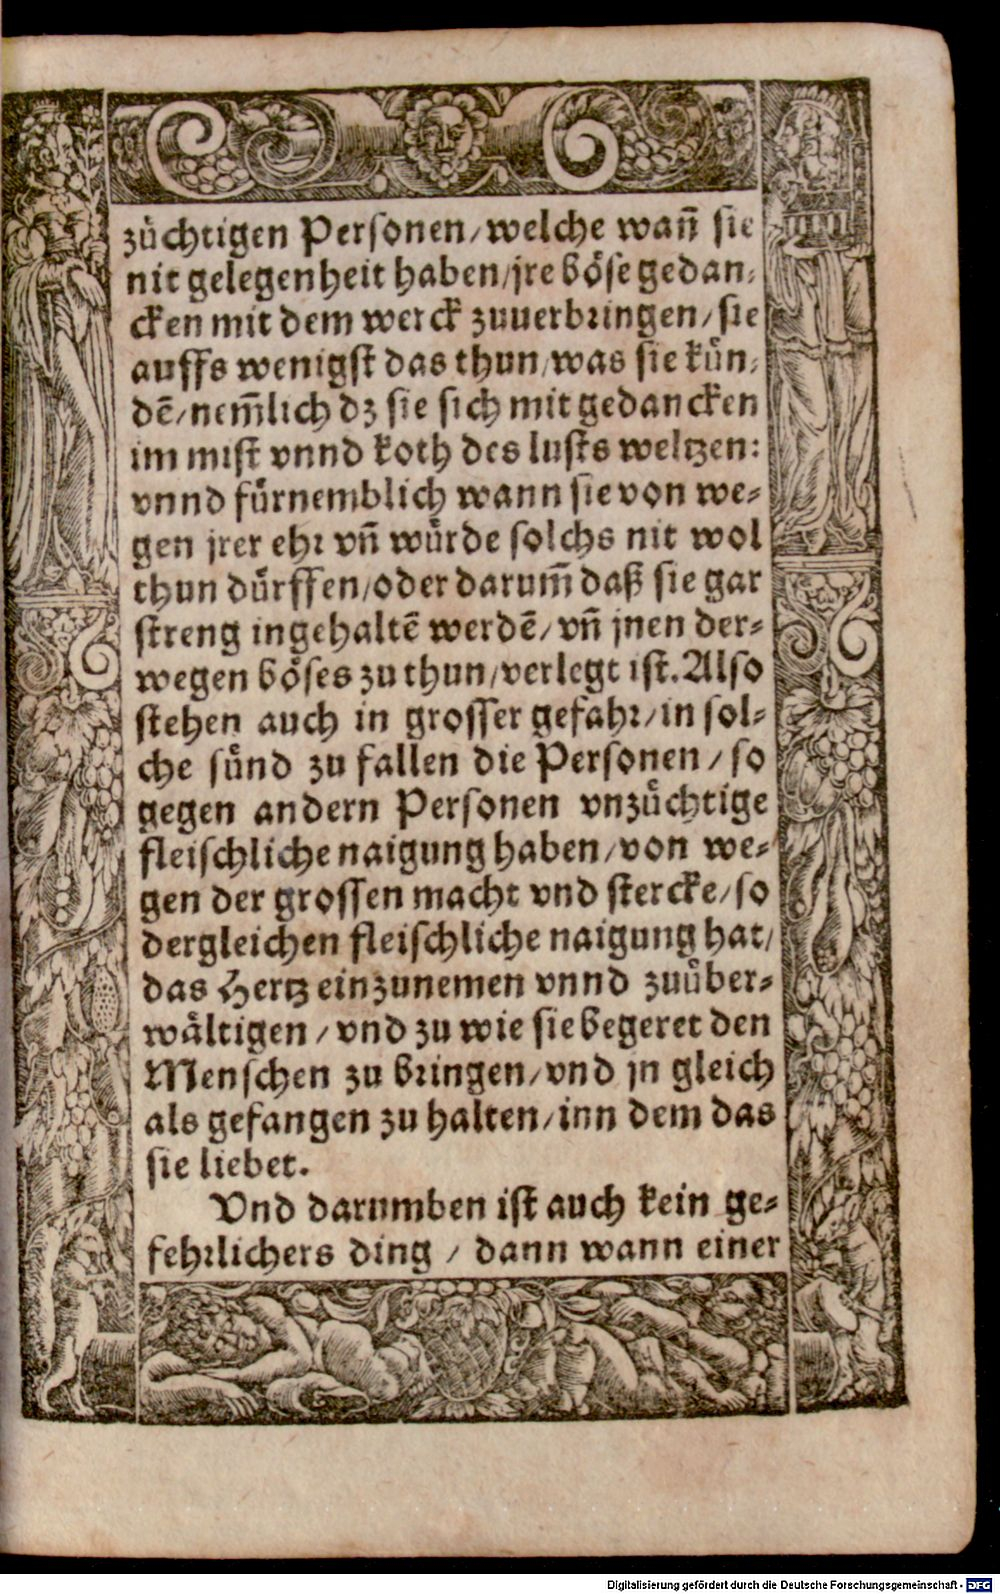 zuͤchtigen Personen/welche wañ sie
nit gelegenheit haben/jre boͤse gedan⸗
cken mit dem werck zuuerbringen/sie
auffs wenigst das thun/was sie kuͤn⸗
dẽ/nem̃lich dz sie sich mit gedancken
im mist vnnd koth des lusts weltzen:
vnnd fuͤrnemblich wann sie von we⸗
gen jrer ehr vñ wuͤrde solchs nit wol
thun duͤrffen/oder darum̃ daß sie gar
streng ingehaltẽ werdẽ/vñ jnen der⸗
wegen boͤses zu thun/verlegt ist. Also
stehen auch in grosser gefahr/in sol⸗
che suͤnd zu fallen die Personen/so
gegen andern Personen vnzuͤchtige
fleischliche naigung haben/von we⸗
gen der grossen macht vnd stercke/so
dergleichen fleischliche naigung hat/
das Hertz einzunemen vnnd zuuͤber⸗
waͤltigen/vnd zu wie sie begeret den
Menschen zu bringen/vnd jn gleich
als gefangen zu halten/inn dem das
sie liebet.
Vnd darumben ist auch kein ge⸗
fehrlichers ding/dann wann einer
Digitalisierung gefördert durch die Deutsche Forschungsgemeinschaft - DFG